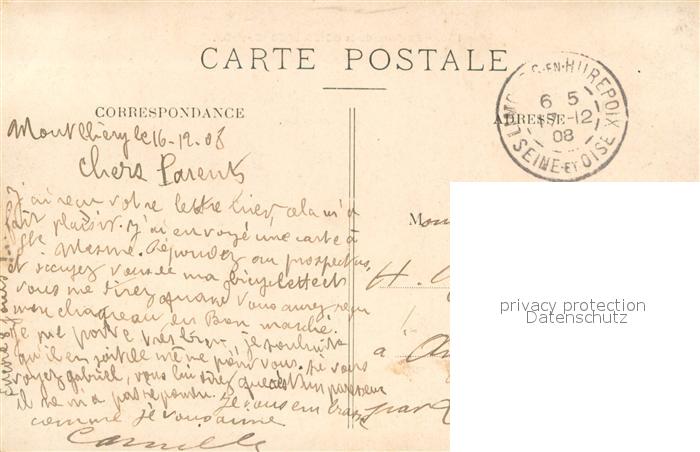 CARTE POSTALE
CORRESPONDANCE
ADRESSE
LIMOURS-EN-HUREPOIX
6 5
17-12
08
SEINE-ET-OISE
Montlhéry le 16-12.08
Chers Parents
J'ai reçu votre lettre hier, cela m'a
fait plaisir. J'ai envoyé une carte à
Mesme. Répondez au prospectus,
et occupez vous de ma bicyclette
vous me direz quand vous aurez reçu
mon chapeau du Bon marché.
Je me porte très bien, je souhaite
qu'il en soit de même pour vous. Si vous
voyez gabriel, vous lui direz que c'est un paresseux
il ne m'a pas répondu. Je vous embrasse
comme je vous aime
Camille
Mon
H.
à
par
privacy protection
Datenschutz